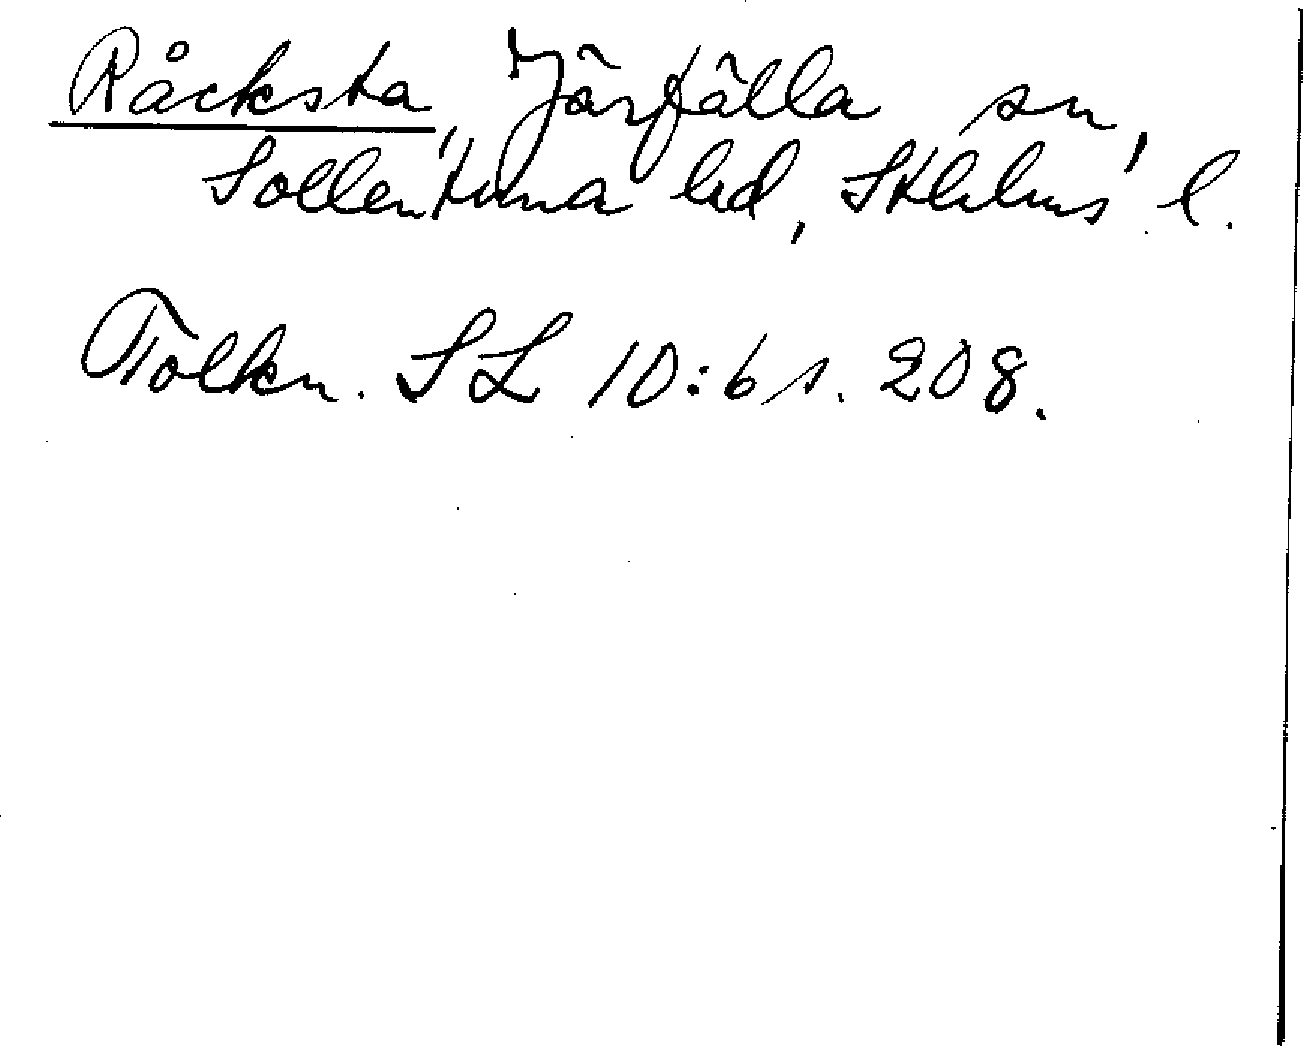 Råcksta, Järfälla sn,
Sollentuna hd, Sthlms l.
Tolkn. SL 10:6 s. 208.